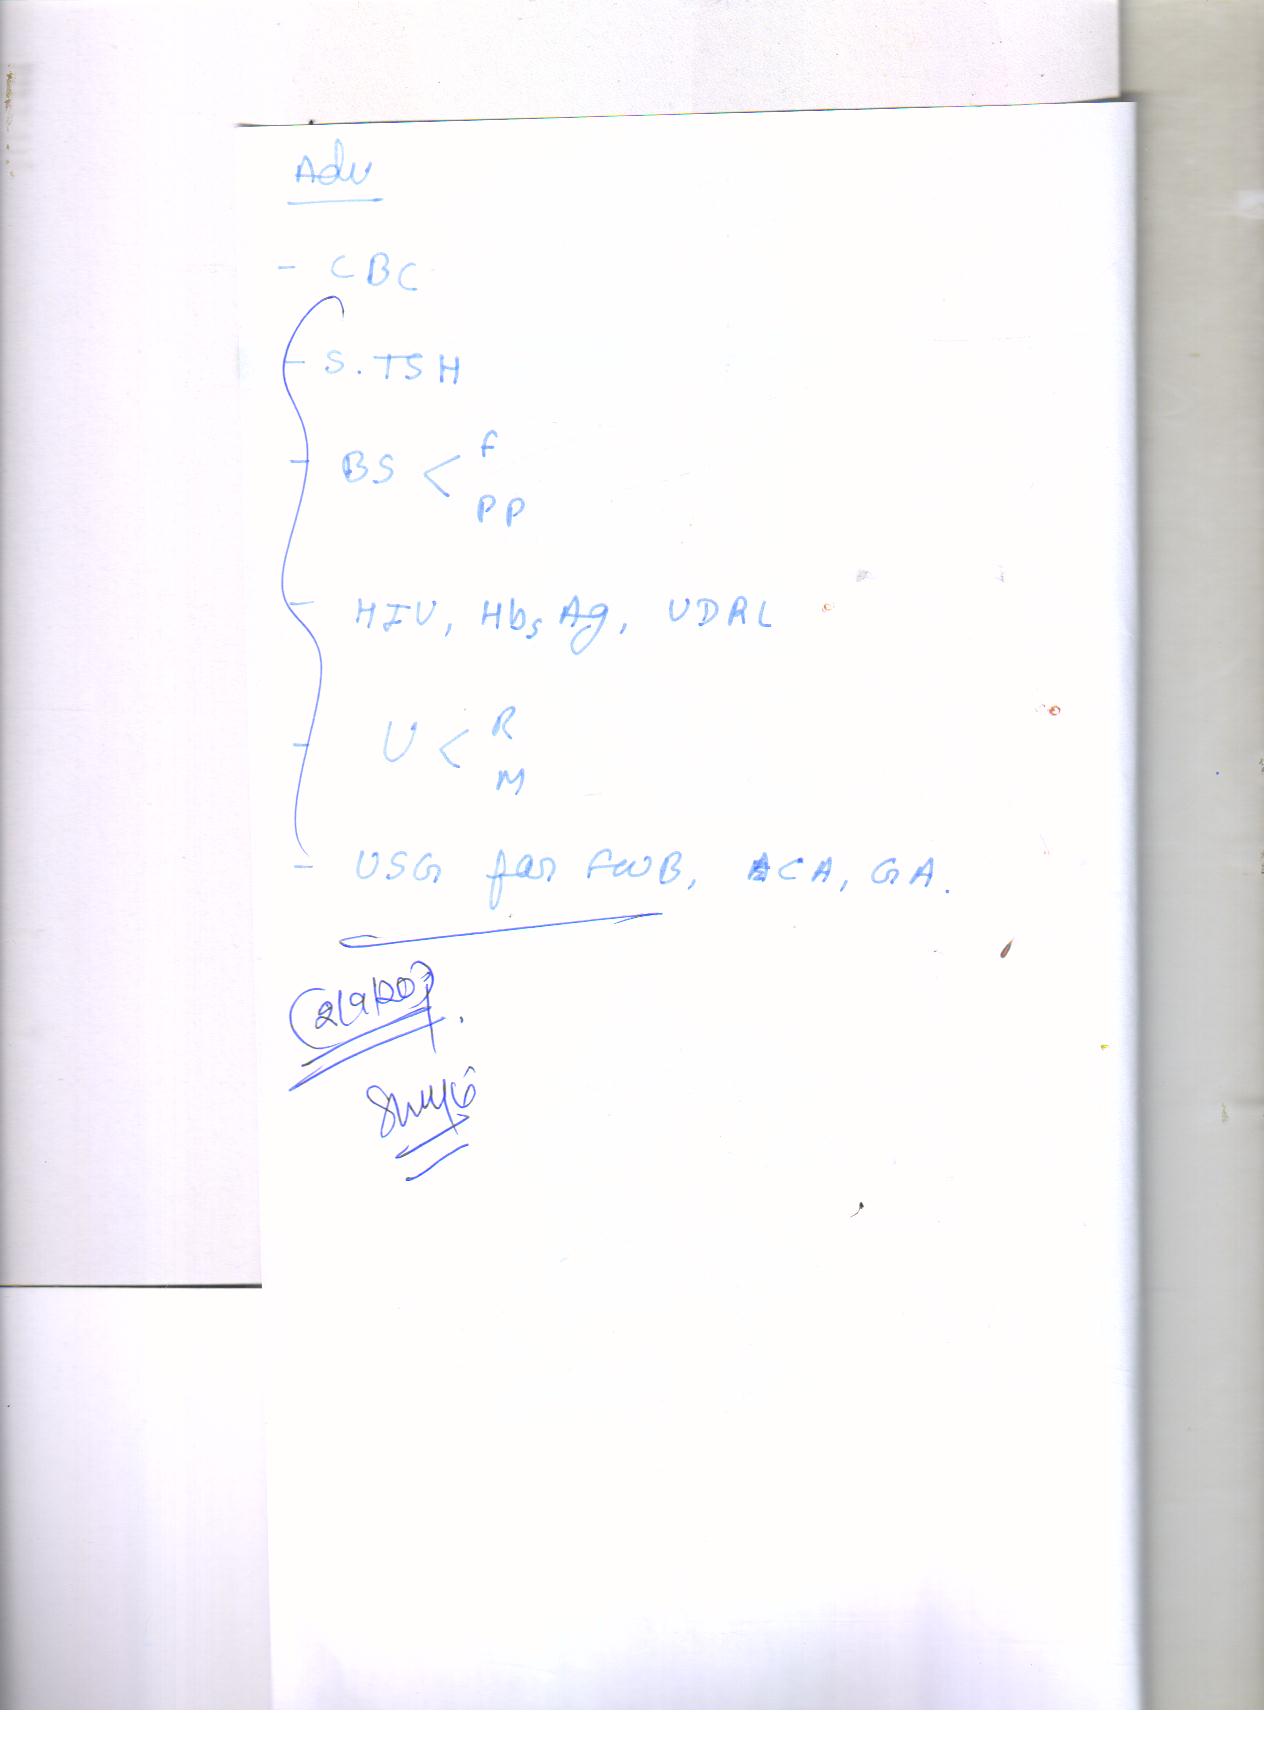 Adv
- CBC
- S. TSH
- BS < F
PP
- HIV, HbsAg, VDRL
- U < R
M
- USG for FWB, ACA, GA.